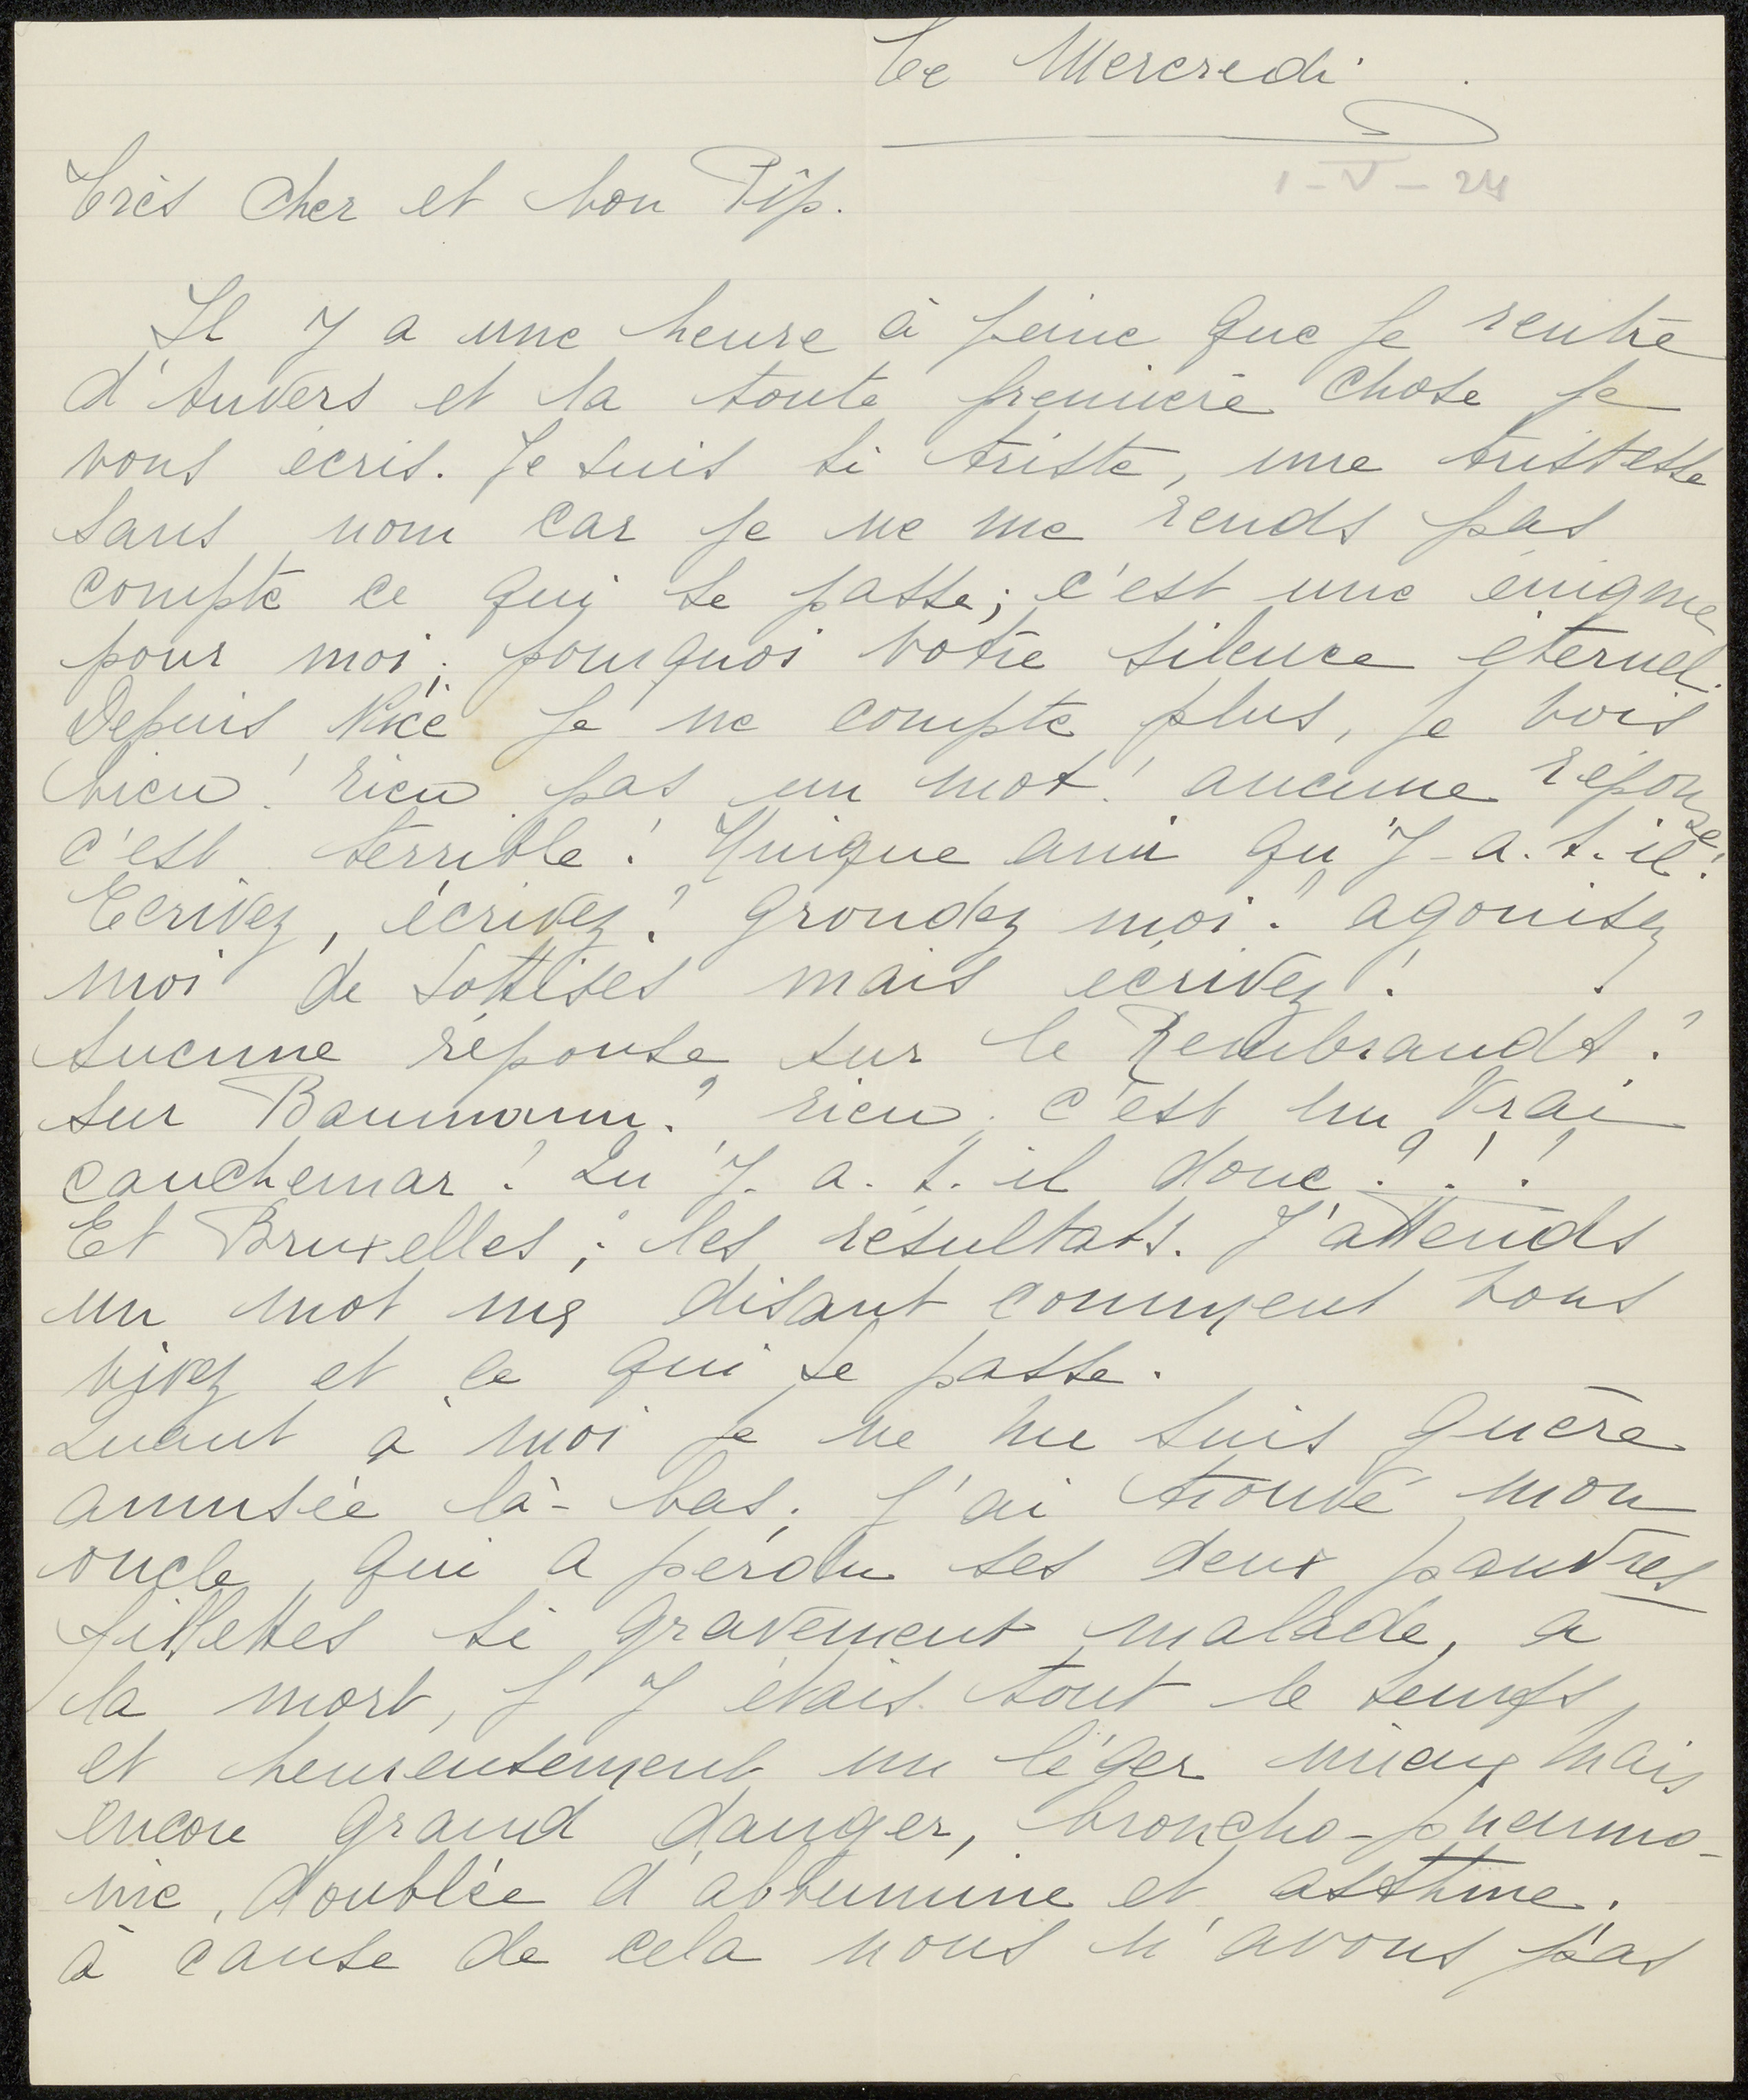 Ce Mercredi
1-V-24
Très Cher et bon Pip.
Il y a une heure à peine que je rentre
d'Anvers et la toute première chose je
vous écris. Je suis si triste, une tristesse
sans nom car je ne me rends pas
compte ce qui se passe; c'est une énigme
pour moi; pourquoi votre silence éternel.
Depuis Nice je ne compte plus, je vois
bien! rien pas un mot! aucune réponse
c'est terrible! Unique ami qu'y-a.t.il!
Ecrivez, écrivez! Grondez moi! agonisez
moi de sottises mais écrivez!
Aucune réponse sur le Rembrandt?
sur Baumann? rien. C'est un vrai
cauchemar! Qu'y.a.t.il donc?!!
Et Bruxelles; les résultats. J'attends
un mot me disant comment vous
vivez et ce qui se passe.
Quant à moi je ne me suis guère
amusée là-bas; j'ai trouvé mon
oncle, qui a perdu ses deux pauvres
fillettes si gravement malade, à
la mort, j'y étais tout le temps,
et heureusement un léger mieux mais
encore grand danger, broncho-pneumo-
nie, doublée d'albumine et asthme.
à cause de cela nous n'avons pas